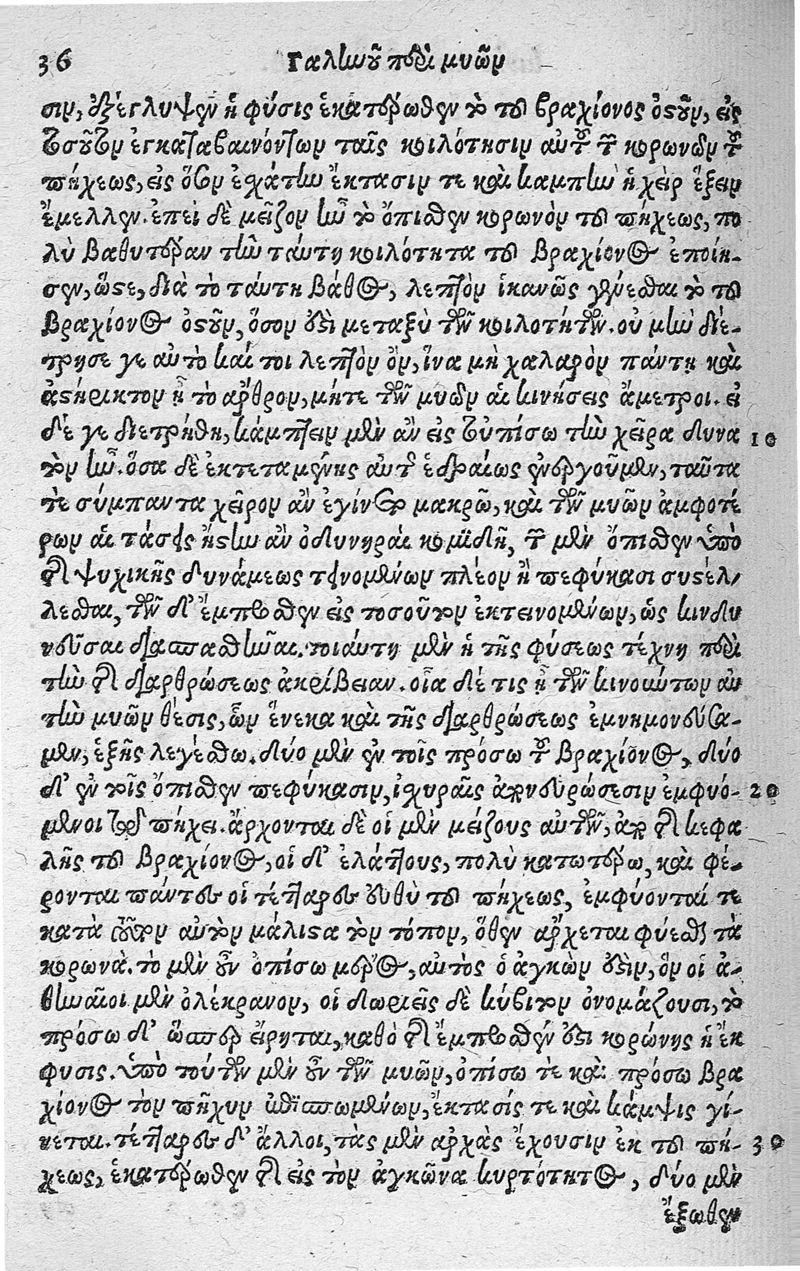 36 Γαληνοῦ περὶ μυῶν
σιν, ἐξέγλυψεν ἡ φύσις ἑκατέρωθεν τὸ τοῦ βραχίονος ὀστοῦν, εἰς
τοσοῦτον ἐγκαταβαινόντων ταῖς κοιλότησιν αὐτοῦ τῶν κορωνῶν τοῦ
πήχεως, εἰς ὅσον ἐσχάτην ἔκτασίν τε καὶ καμπὴν ἡ χεὶρ ἕξειν
ἔμελλεν. ἐπεὶ δὲ μεῖζον ἦν τὸ ὄπισθεν κορωνὸν τοῦ πήχεως, πο
λὺ βαθυτέραν τὴν ταύτῃ κοιλότητα τοῦ βραχίονος ἐποίη-
σεν, ὥστε, διὰ τὸ ταύτῃ βάθος, λεπτὸν ἱκανῶς γενέσθαι τὸ τοῦ
βραχίονος ὀστοῦν, ὅσον ἐστὶ μεταξὺ τῶν κοιλοτήτων. οὐ μὴν διέ-
τρησέ γε αὐτὸ καί τοι λεπτὸν ὂν, ἵνα μὴ χαλαρὸν πάντῃ καὶ
ἀστήρικτον ᾖ τὸ ἄρθρον, μήτε τῶν μυῶν αἱ κινήσεις ἄμετροι. εἰ
δέ γε διετρήθη, κάμπτειν μὲν ἂν εἰς τοὐπίσω τὴν χεῖρα δυνα 10
τὸν ἦν. ὅσα δὲ ἐκτεταμένης αὐτῆς ἑδραίως ἐνεργοῦμεν, ταῦτα
τε σύμπαντα χεῖρον ἂν ἐγίνετο μακρῷ, καὶ τῶν μυῶν ἀμφοτέ
ρων αἱ τάσεις ἦσαν ἂν ὀδυνηραὶ κομιδῇ, τῶν μὲν ὄπισθεν ὑπὸ
τῆς ψυχικῆς δυνάμεως τεινομένων πλέον ἢ πεφύκασι συστέλ-
λεσθαι, τῶν δ' ἔμπροσθεν εἰς τοσοῦτον ἐκτεινομένων, ὡς κινδυ
νεῦσαι διασπασθῆναι. τοιαύτη μὲν ἡ τῆς φύσεως τέχνη περὶ
τὴν τῆς διαρθρώσεως ἀκρίβειαν. οἵα δέ τις ἡ τῶν κινούντων αὐ
τὴν μυῶν θέσις, ὧν ἕνεκα καὶ τῆς διαρθρώσεως ἐμνημονεύσα-
μεν, ἑξῆς λεγέσθω. δύο μὲν ἐν τοῖς πρόσω τοῦ βραχίονος, δύο
δ' ἐν τοῖς ὄπισθεν πεφύκασιν, ἰσχυραῖς ἀπονευρώσεσιν ἐμφυό- 20
μενοι τῷ πήχει. ἄρχονται δὲ οἱ μὲν μείζους αὐτῶν, ἀπὸ τῆς κεφα
λῆς τοῦ βραχίονος, οἱ δ' ἐλάττους, πολὺ κατωτέρω, καὶ φέ-
ρονται πάντες οἱ τέτταρες εὐθὺ τοῦ πήχεως, ἐμφύονταί τε
κατὰ τοῦτον αὐτὸν μάλιστα τὸν τόπον, ὅθεν ἄρχεται φύεσθαι τὰ
κορωνά. τὸ μὲν οὖν ὀπίσω μέρος, αὐτὸς ὁ ἀγκών ἐστιν, ὃν οἱ ἀ-
θηναῖοι μὲν ὀλέκρανον, οἱ δωριεῖς δὲ κύβιτον ὀνομάζουσι, τὸ
πρόσω δ' ὥσπερ εἴρηται, καθὸ τῆς ἔμπροσθέν ἐστι κορώνης ἡ ἔκ
φυσις. ὑπὸ τούτων μὲν οὖν τῶν μυῶν, ὀπίσω τε καὶ πρόσω βρα
χίονος τὸν πῆχυν ἐπισπωμένων, ἔκτασίς τε καὶ κάμψις γί-
νεται. τέτταρες δ' ἄλλοι, τὰς μὲν ἀρχὰς ἔχουσιν ἐκ τοῦ πή- 30
χεως, ἑκατέρωθεν τῆς εἰς τὸν ἀγκῶνα κυρτότητος, δύο μὲν
ἔξωθεν